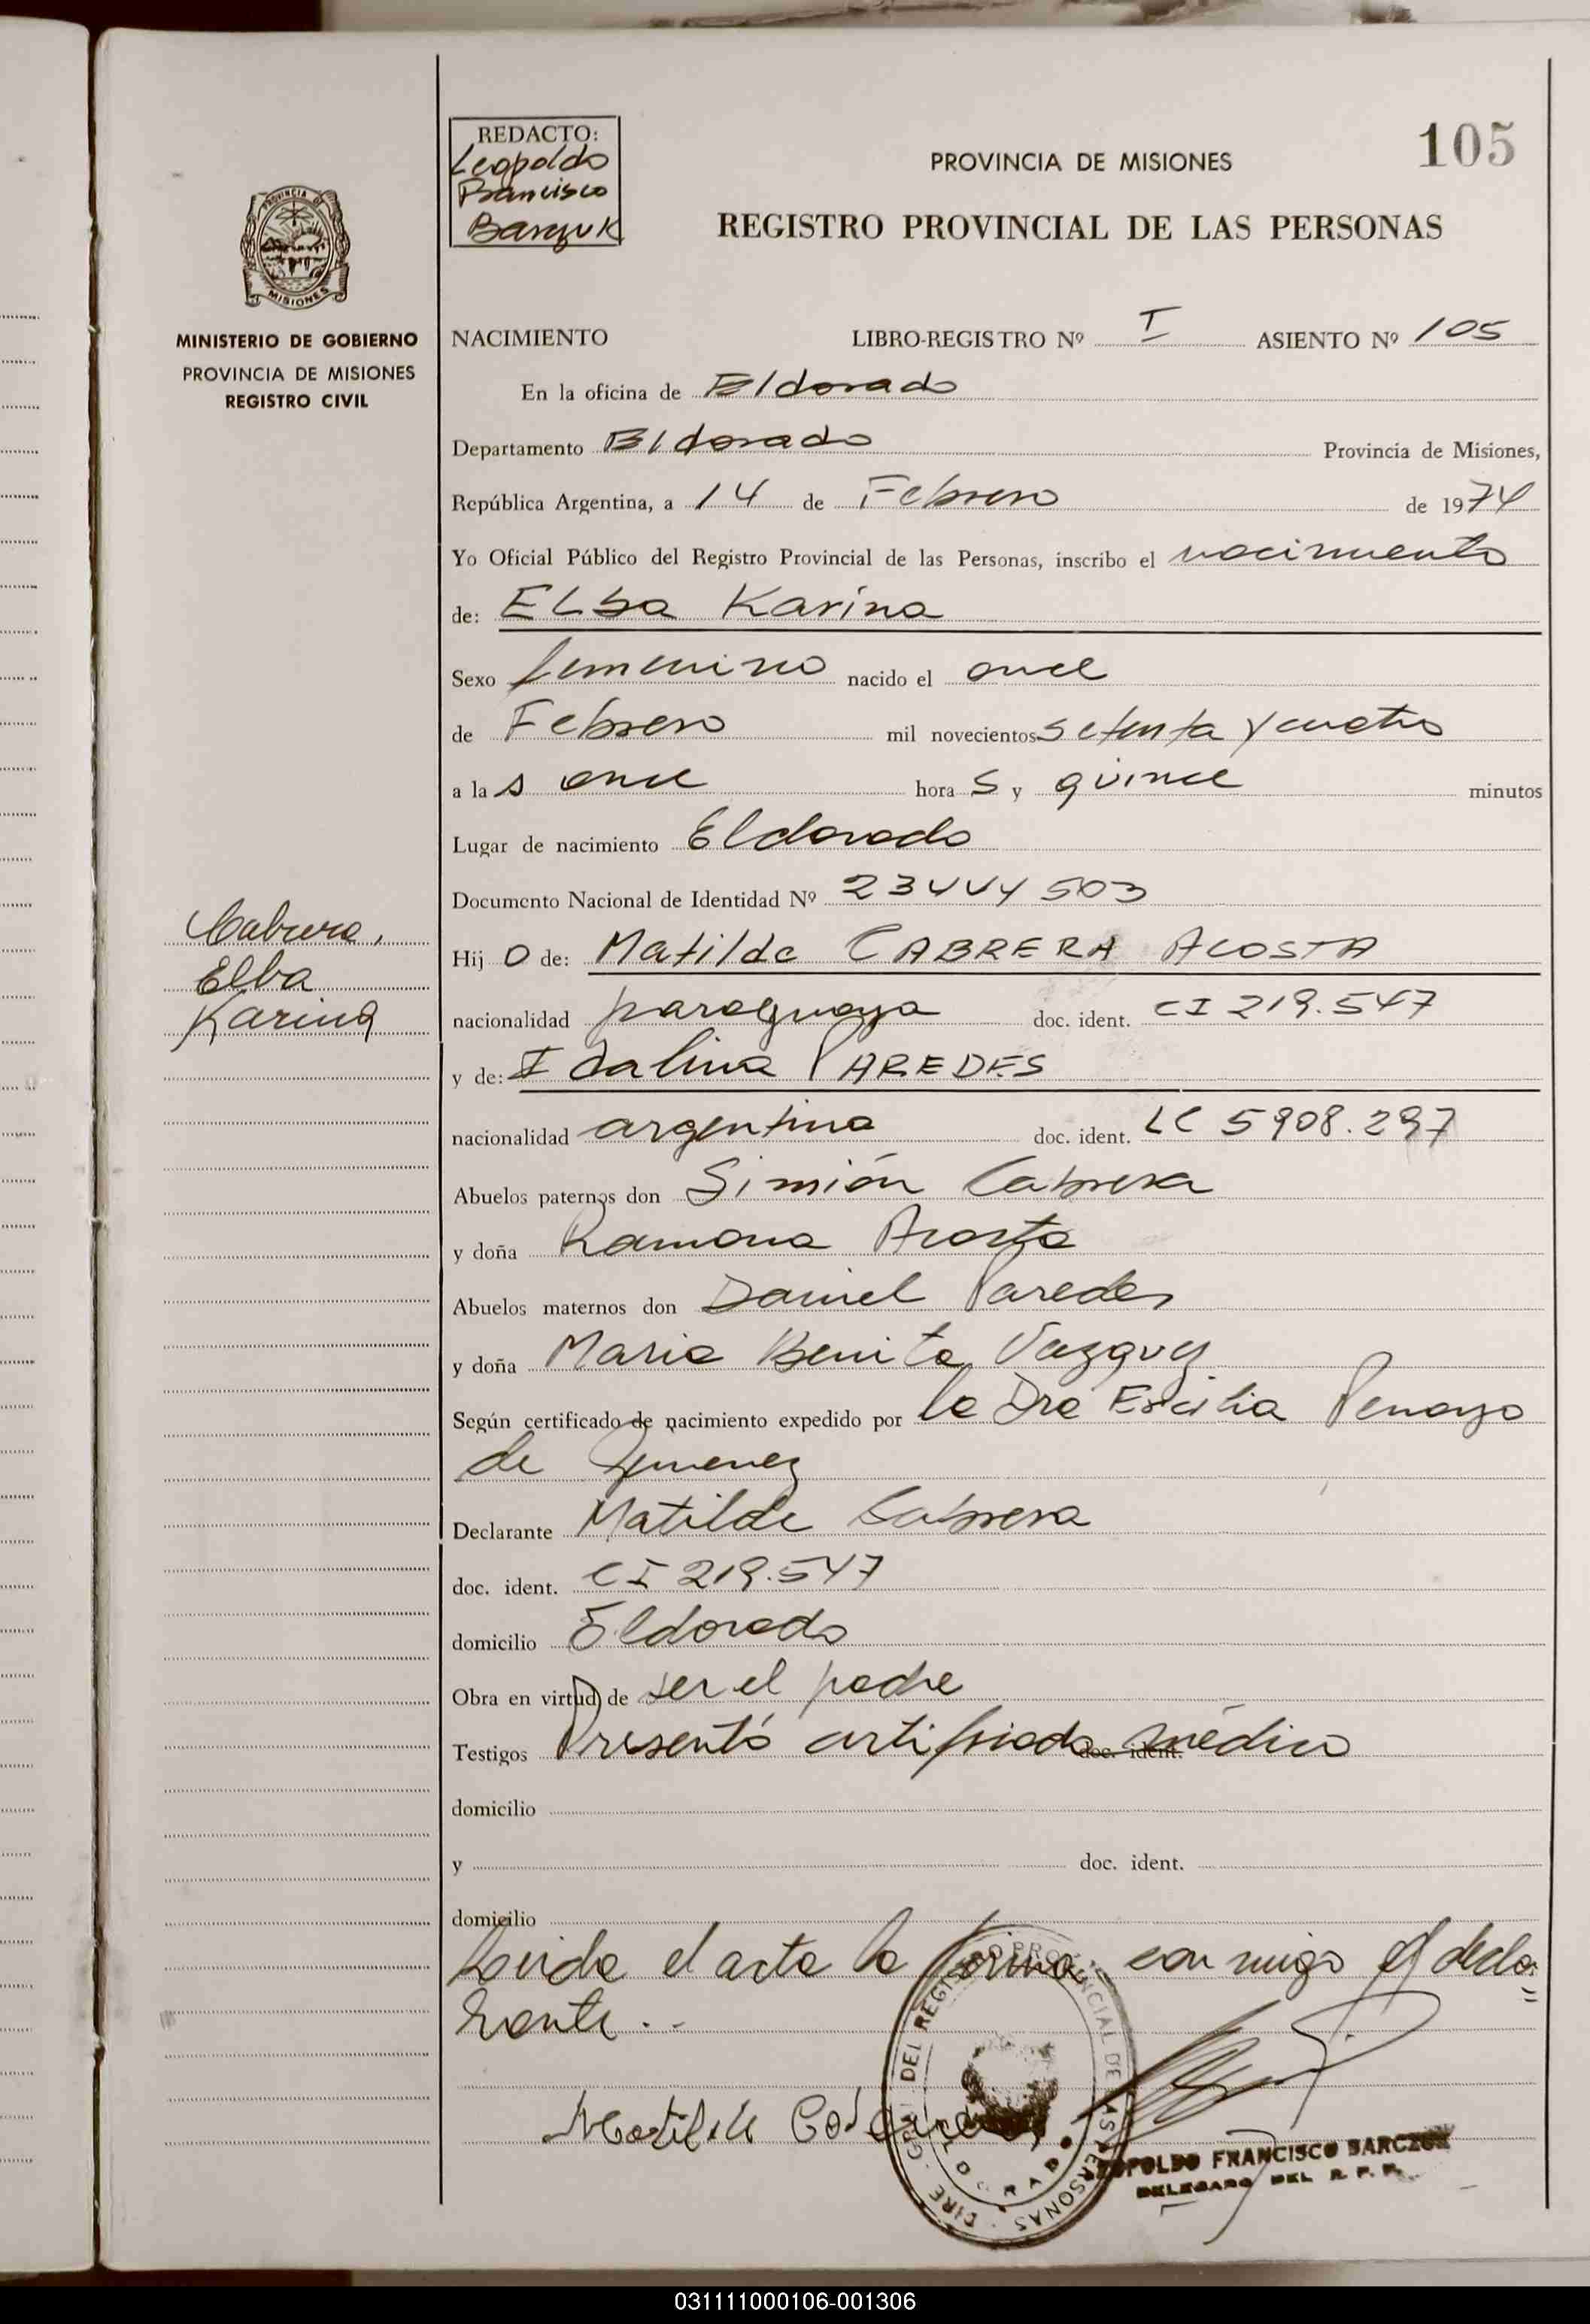 105
REDACTO:
Leopoldo
Francisco
Barczuk
PROVINCIA DE MISIONES
REGISTRO PROVINCIAL DE LAS PERSONAS
PROVINCIA DE
MISIONES
MINISTERIO DE GOBIERNO
PROVINCIA DE MISIONES
REGISTRO CIVIL
NACIMIENTO LIBRO-REGISTRO Nº I ASIENTO Nº 105
En la oficina de Eldorado
Departamento Eldorado Provincia de Misiones,
República Argentina, a 14 de Febrero de 1974
Yo Oficial Público del Registro Provincial de las Personas, inscribo el nacimiento
de: ELBa Karina
Sexo femenino nacido el once
de Febrero mil novecientos setenta y cuatro
a las once horas y quince minutos
Lugar de nacimiento Eldorado
Documento Nacional de Identidad Nº 23444503
Cabrera,
Elba
Karina
Hij o de: Matilde CABRERA ACOSTA
nacionalidad paraguaya doc. ident. CI 219.547
y de: Idalina PAREDES
nacionalidad argentina doc. ident. LC 5908.297
Abuelos paternos don Simión Cabrera
y doña Ramona Acosta
Abuelos maternos don Daniel Paredes
y doña Maria Benita Vazquez
Según certificado de nacimiento expedido por la Dra Penayo
de Jimenez
Declarante Matilde Cabrera
doc. ident. CI 219.547
domicilio Eldorado
Obra en virtud de ser el padre
Testigos Presentó certificado doc. ident. médico
domicilio
y doc. ident.
domicilio
Leida el acta la firma conmigo el decla=
rante.-
Matilde Cabrera
DIRE. GRAL DEL REGISTRO PROVINCIAL DE LAS PERSONAS
ELDORADO
LEOPOLDO FRANCISCO BARCZUK
DELEGADO DEL R. P. P.
031111000106-001306